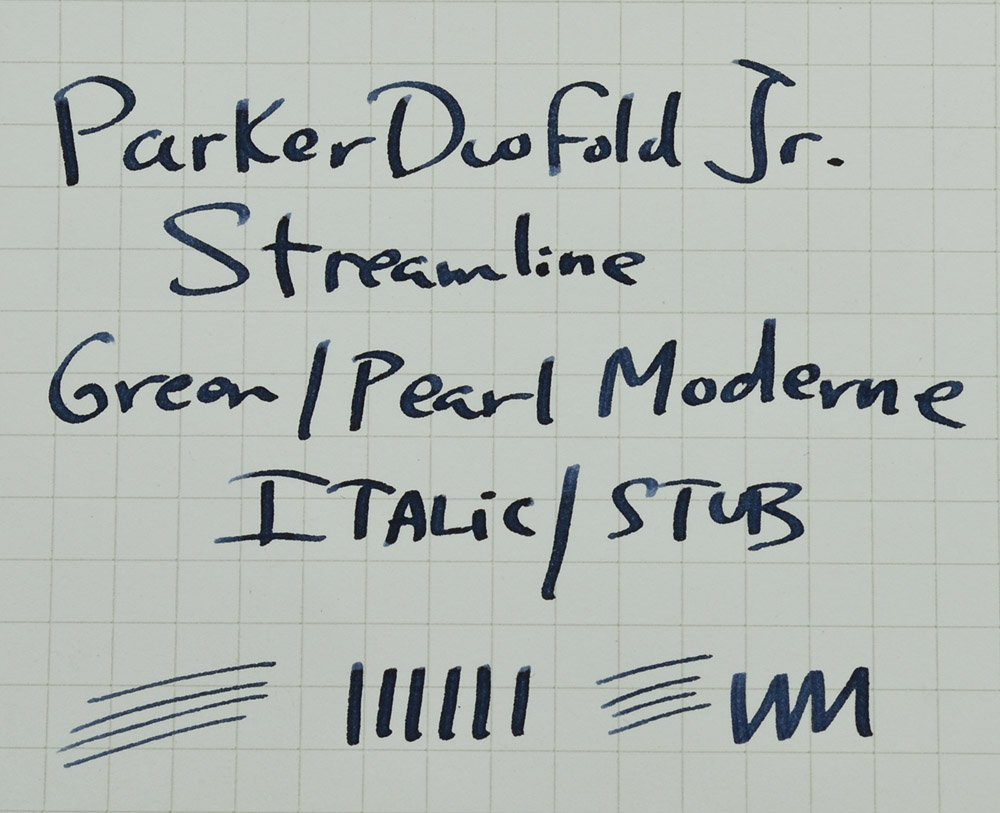 Parker Duofold Jr.
Streamline
Green/Pearl Moderne
ITALiC/STUB